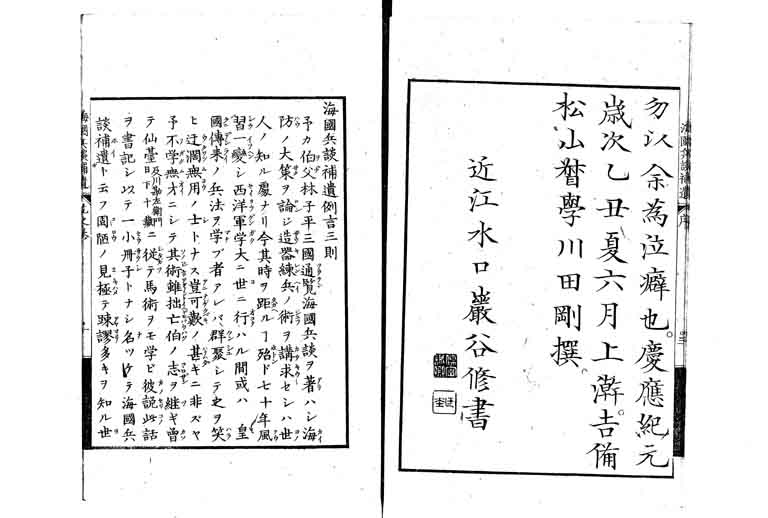 勿以余為泣癖也。慶應紀元
歳次乙丑夏六月上澣吉備
松山瞀學川田剛撰。
近江水口巖谷修書
海國兵談補遺例言三則
予カ伯父林子平三國通覧海國兵談ヲ著ハシ海
防ノ大策ヲ論シ造器練兵ノ術ヲ講求セシハ世
人ノ知ル處ナリ今其時ヲ距ル丁殆ト七十年風
習一變シ西洋軍學大ニ世ニ行ハル間或ハ皇
國傳来ノ兵法ヲ学フ者アレハ群聚シテ之ヲ笑
ヒ迂濶無用ノ士トナス豈可歎ノ甚キニ非スヤ
予不学無才ニシテ其術雖拙亡伯ノ志ヲ継キ曽
テ仙臺及川幸左衛門日下十蔵ニ従テ馬術ヲモ学ヒ彼説此話
ヲ書記シ以テ一小冊子トナシ名ツケテ海國兵
談補遺ト云フ固陋ノ見極テ踈謬多キヲ知ル世